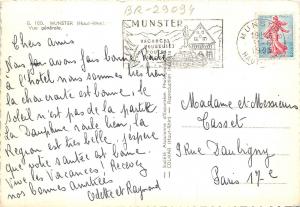 BR-29094
S. 103. MUNSTER (Haut-Rhin)
Vue générale.
MUNSTER
VACANCES
Chers Amis
Nous avons fais bonne route
à l'hotel nous sommes très bien
la choucroute est bonne, le
soleil n'est pas de la partie
La Dauphine roule bien, la
Region est très belle, j'espère
que votre santée est bonne.
Vive les Vacances! Recevez
nos bonnes Amitiées
Odette et Raymond
Madame et Monsieur
Casset
9 Rue Daubigny
Paris 17e